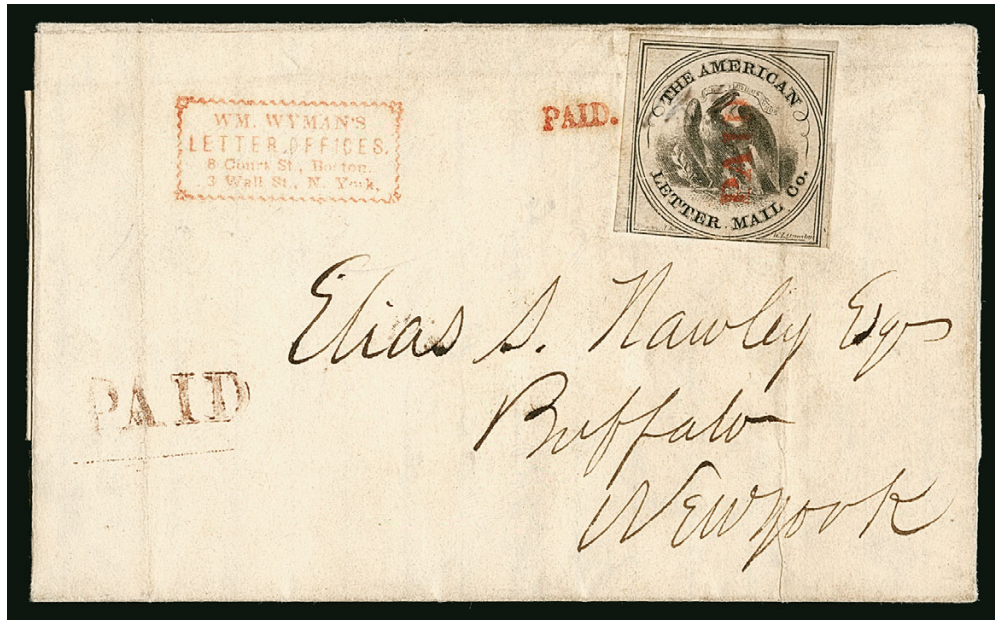 WM. WYMAN'S
LETTER OFFICES.
8 Court St., Boston.
3 Wall St., N. York.
PAID.
THE AMERICAN
PAID
LETTER MAIL Co.
Elias S. Hawley Esqr
Buffalo
Newyork
PAID